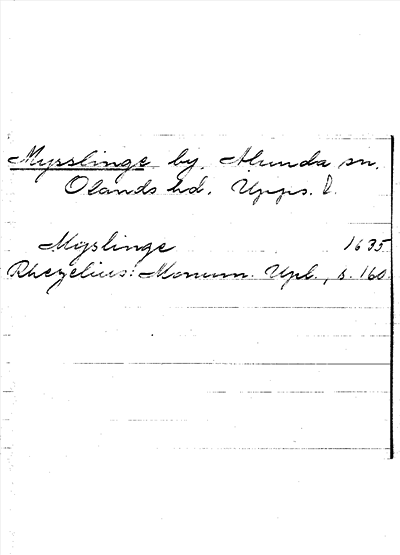 Mysslinge by. Alunda sn.
Olands hd. Upps. l.
Myslinge 1635
Rhezelius: Monum. Upl., s. 160.